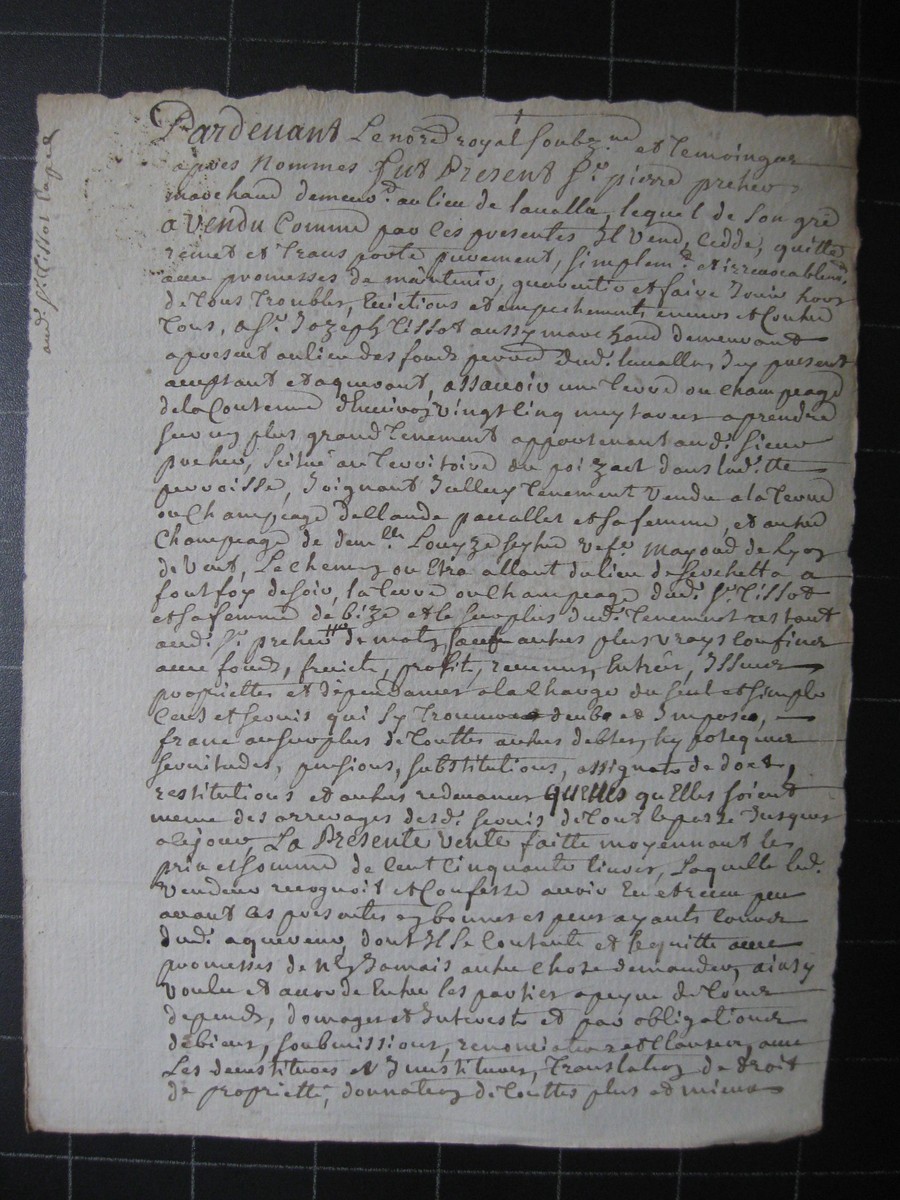 Pardevant Le no.re royal soubz.né et temoingz
apres nommes fut Present S.r pierre preher
marchand demeur.t au lieu de lavalla, lequel de son gré
a vendu Comme par ces presentes Il Vend, Cedde, quitte
remet et transporte purement, simplem.t et irrevocablem.t
avec promesses de maintenir, guarentir et faire Jouir hors
de tous troubles, Evictions et empechements envers et Contre
tous, a S.r Jozeph tissot aussy marchand demeurant
apresent au lieu des fonds perroisse dud. lavalla, Icy present
aceptant et aquerant, assavoir une terre ou Champeage
de la Contenue d'Environ vingt Cinq meyterees a prendre
sur un plus grand tenement appartenant aud. sieur
preher, scitué au territoire du poizact dans lad.itte
perroisse, Joignant Icelluy tenement Vendu a la terre
ou Champeage de Claude et sa femme, et autre
Champeage de dem.lle Louyze seytre vefv. mayoud de
de Vent, Le chemin ou Etra allant du lieu de a
fontfoy de soir, la terre ou Champeage dud. S.r tissot
et sa femme de bize et le surplus dud. tenement restant
aud. S.r preher de matin, sauf autres plus vrays Confins
avec fonds, fruicts, profits, revenus, Entrées, Issues
proprietes et dependances a la Charge du seul et simple
Cens et servis qui sy trouvera deube et Imposé,
franc au surplus de touttes autres debtes, hypoteques
servitudes, pensions, substitutions, assignats de dots,
restitutions et autres redevances quelles qu'Elles soient
meme des arrerages desd. servis de tout le passé Jusques
a ce jour, La Presente Vente faitte moyennant les
prix et somme de Cent Cinquante livres, Laquelle led.
Vendeur recognoit et Confesse avoir Eu et receu peu
avant Ces presentes en bonnes especes ayants Cours
dud. aquereur, dont Il se Contente et le quitte avec
promesses de n'En Jamais autre Chose demander, ainsy
voulu et accordé Entre les parties a peyne de tous
depends, domages et Interests et par obligations
de biens, soubmissions, renonciations et Clauses, avec
Les devestitures et Investitures, translation de droit
de proprietté, donnation de touttes plus et mieux
aud. S.r tissot